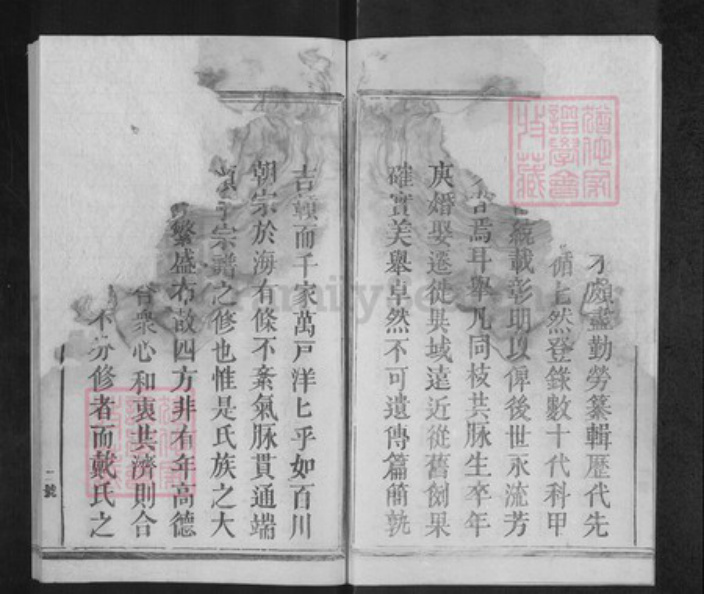 才處盡勤勞纂輯歷代先
然登錄數十代科甲
統載彰明以俾後世永流芳
焉耳舉凡同枝共脉生卒年
庚婚娶遷徙異域遠近從舊例果
確實美舉卓然不可遺傳篇簡孰
吉贛而千家萬戸洋匕乎如百川
朝宗於海有條不紊氣脉貫通端
宗譜之修也惟是氏族之大
繁盛布散四方非有年高德
衆心和衷共濟則合
不分修者而戴氏之